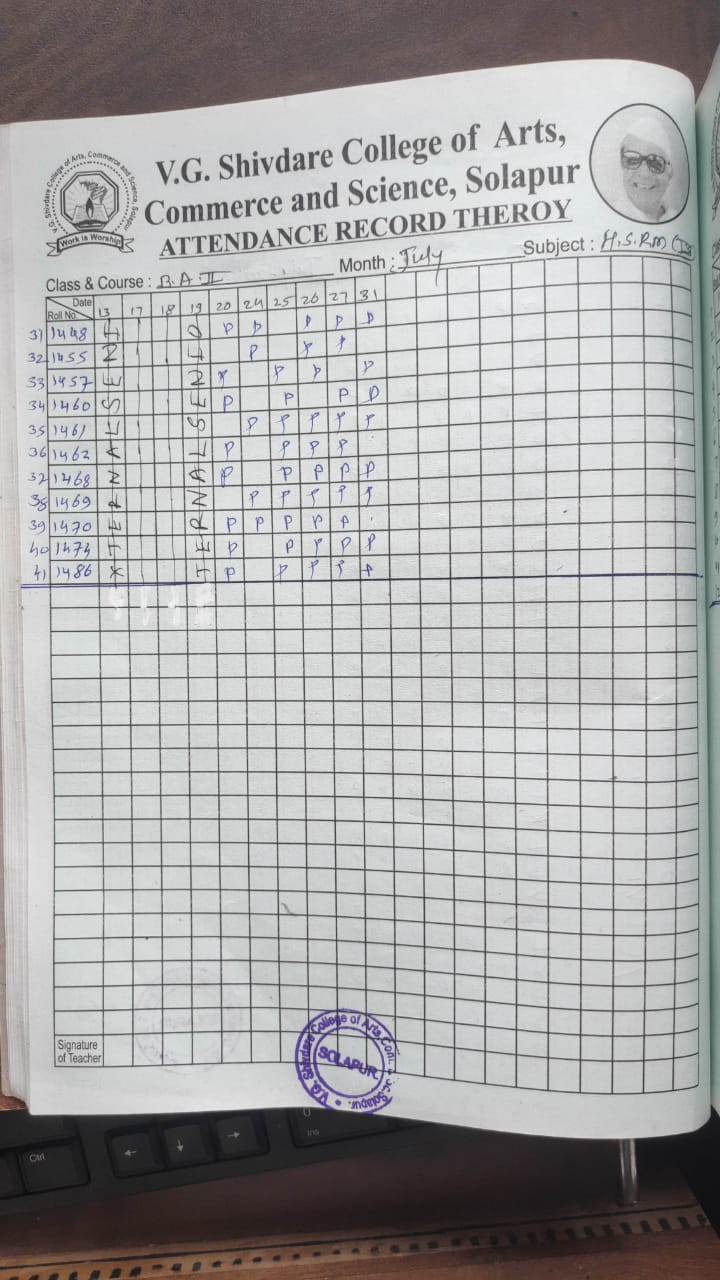 V.G. Shivdare College of Arts, Commerce and Science, Solapur
Work is Worship
V.G. Shivdare College of Arts,
Commerce and Science, Solapur
ATTENDANCE RECORD THEROY
Class & Course : B.A.II Month : July Subject : H.S.R.M
Date
Roll No. 13 17 18 19 20 24 25 26 27 31
31 1448 P P P P P
32 1455 P P P
33 1457 P P P P
34 1460 P P P P
35 1461 P P P P P
36 1462 P P P P
37 1468 P P P P P
38 1469 P P P P P
39 1470 P P P P P
40 1474 P P P P P
41 1486 P P P P P
Signature
of Teacher
V.G. Shivdare College of Arts, Com. Solapur.
SOLAPUR
Ctrl
Ins